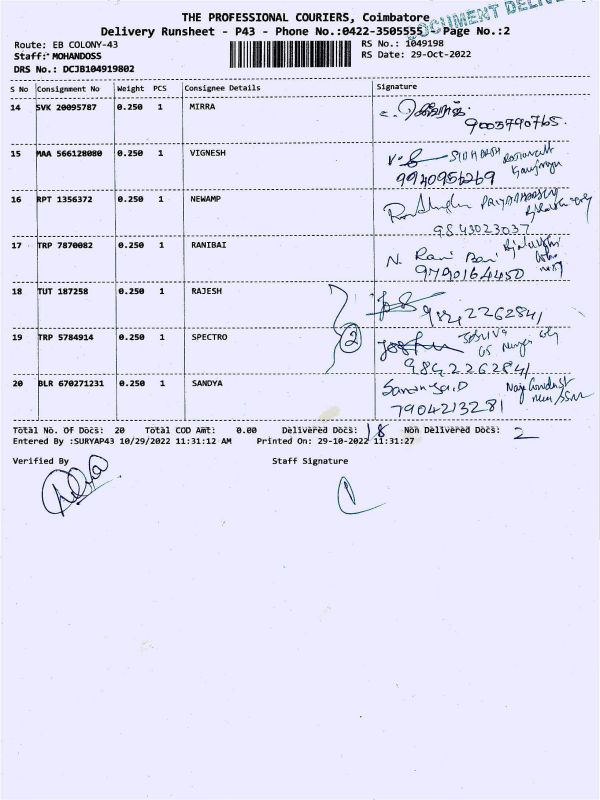 THE PROFESSIONAL COURIERS, Coimbatore
DOCUMENT DELIV
Delivery Runsheet - P43 - Phone No.:0422-3505555 Page No.:2
Route: EB COLONY-43
RS No.: 1049198
Staff: MOHANDOSS
RS Date: 29-Oct-2022
DRS No.: DCJB104919802
S No Consignment No Weight PCS Consignee Details Signature
14 SVK 20095787 0.250 1 MIRRA
9003790765.
15 MAA 566128080 0.250 1 VIGNESH
16 RPT 1356372 0.250 1 NEWAMP
9843023037
17 TRP 7870082 0.250 1 RANIBAI N. Rani Bai
9790164450
18 TUT 187258 0.250 1 RAJESH
9842262841
2
19 TRP 5784914 0.250 1 SPECTRO
9842262841
20 BLR 670271231 0.250 1 SANDYA
7904213281
Total No. Of Docs: 20 Total COD Amt: 0.00 Delivered Docs: 18 Non Delivered Docs: 2
Entered By :SURYAP43 10/29/2022 11:31:12 AM Printed On: 29-10-2022 11:31:27
Verified By Staff Signature